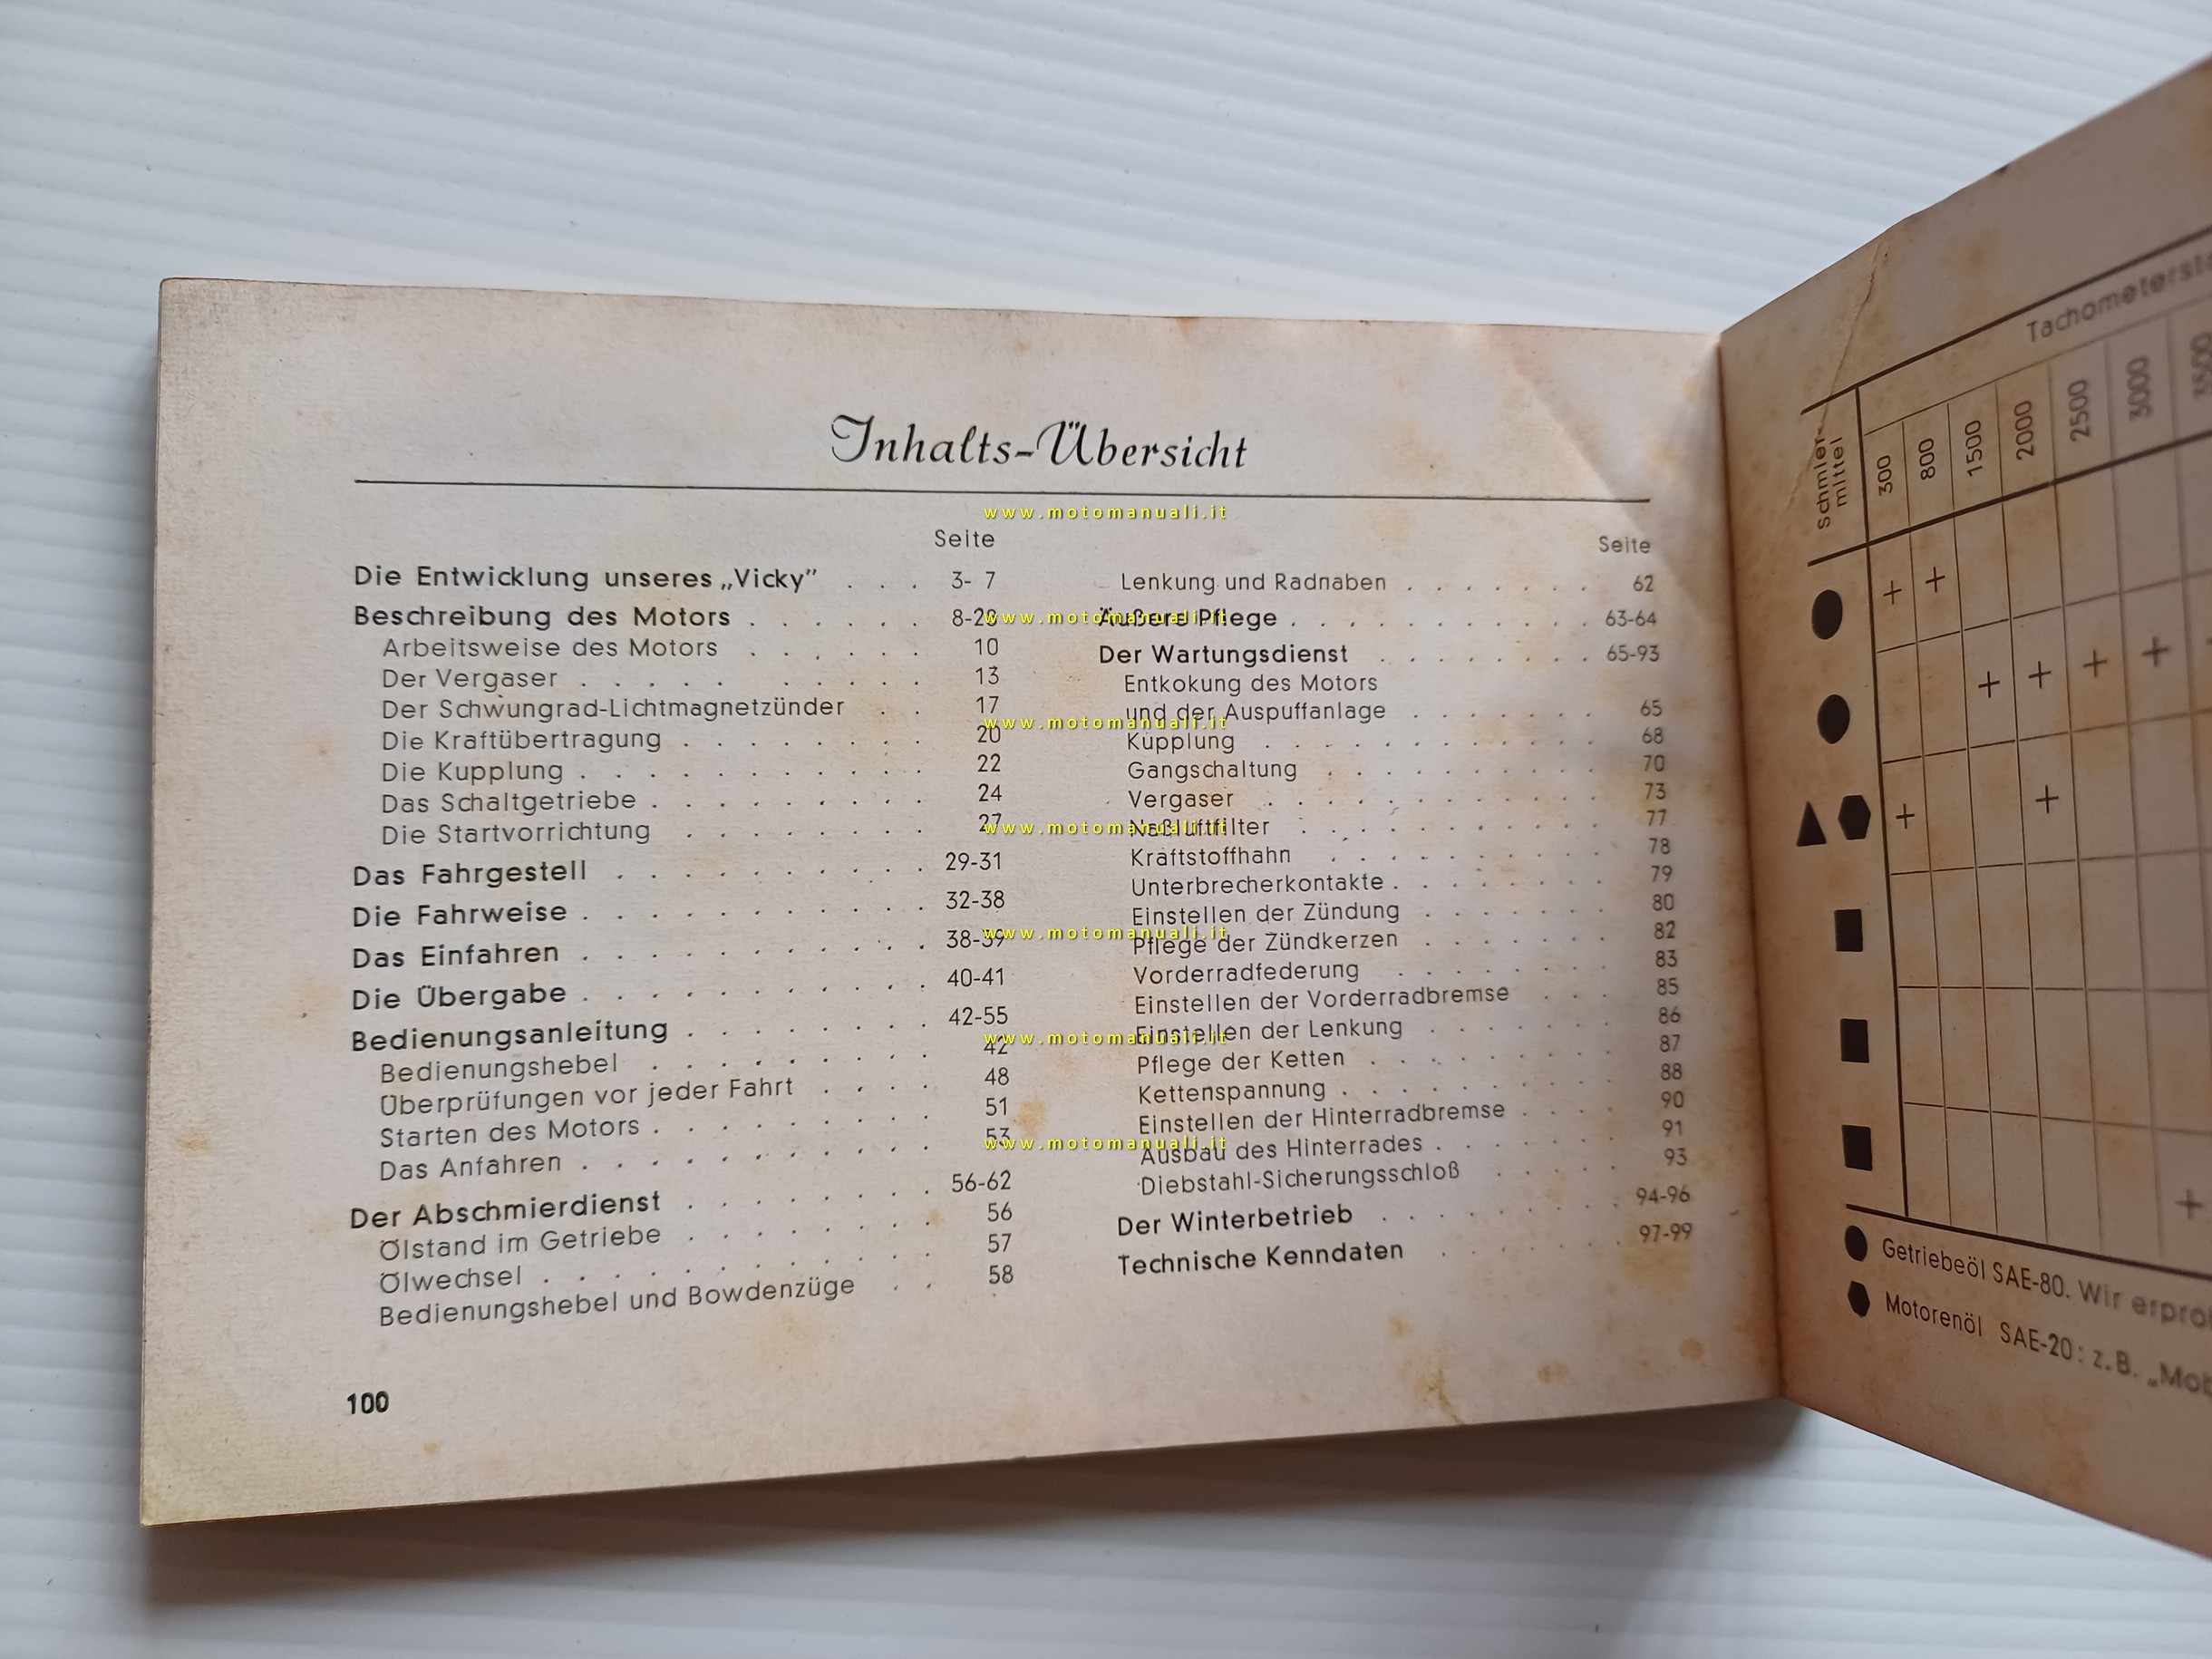 Inhalts-Übersicht
Seite
Die Entwicklung unseres „Vicky" . . . 3- 7
Beschreibung des Motors . . . . . . 8-28
Arbeitsweise des Motors . . . . . . 10
Der Vergaser . . . . . . . . . . 13
Der Schwungrad-Lichtmagnetzünder . . 17
Die Kraftübertragung . . . . . . . . 20
Die Kupplung . . . . . . . . . . . 22
Das Schaltgetriebe . . . . . . . . . 24
Die Startvorrichtung . . . . . . . . 27
Das Fahrgestell . . . . . . . . . . 29-31
Die Fahrweise . . . . . . . . . . . 32-38
Das Einfahren . . . . . . . . . . . 38-39
Die Übergabe . . . . . . . . . . . 40-41
Bedienungsanleitung . . . . . . . . 42-55
Bedienungshebel . . . . . . . . . 42
Überprüfungen vor jeder Fahrt . . . . 48
Starten des Motors . . . . . . . . . 51
Das Anfahren . . . . . . . . . . . 53
Der Abschmierdienst . . . . . . . . 56-62
Ölstand im Getriebe . . . . . . . . 56
Ölwechsel . . . . . . . . . . . . 57
Bedienungshebel und Bowdenzüge . . 58
100
Seite
Lenkung und Radnaben . . . . . . . 62
Äußere Pflege . . . . . . . . . . . 63-64
Der Wartungsdienst . . . . . . . . 65-93
Entkokung des Motors
und der Auspuffanlage . . . . . . . 65
Kupplung . . . . . . . . . . . . 68
Gangschaltung . . . . . . . . . . 70
Vergaser . . . . . . . . . . . . 73
Naßluftfilter . . . . . . . . . . . 77
Kraftstoffhahn . . . . . . . . . . 78
Unterbrecherkontakte . . . . . . . . 79
Einstellen der Zündung . . . . . . . 80
Pflege der Zündkerzen . . . . . . . 82
Vorderradfederung . . . . . . . . 83
Einstellen der Vorderradbremse . . . 85
Einstellen der Lenkung . . . . . . . 86
Pflege der Ketten . . . . . . . . . 87
Kettenspannung . . . . . . . . . . 88
Einstellen der Hinterradbremse . . . . 90
Ausbau des Hinterrades . . . . . . . 91
Diebstahl-Sicherungsschloß . . . . . 93
Der Winterbetrieb . . . . . . . . . 94-96
Technische Kenndaten . . . . . . . 97-99
www.motomanuali.it
www.motomanuali.it
www.motomanuali.it
www.motomanuali.it
www.motomanuali.it
www.motomanuali.it
www.motomanuali.it
Schmier-
mittel
300
800
1500
2000
2500
3000
3500
+ +
+ + + +
+ +
+
Getriebeöl SAE-80. Wir
Motorenöl SAE-20: z.B.